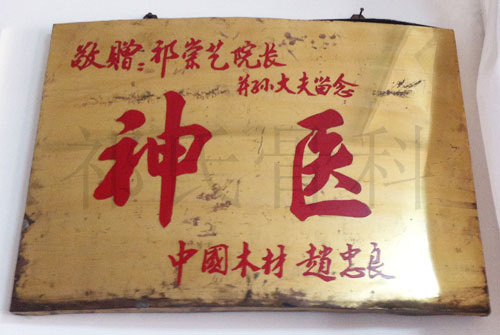 敬赠:祁崇艺院长
并孙大夫留念
神医
中國木材 趙忠良
祁氏骨科